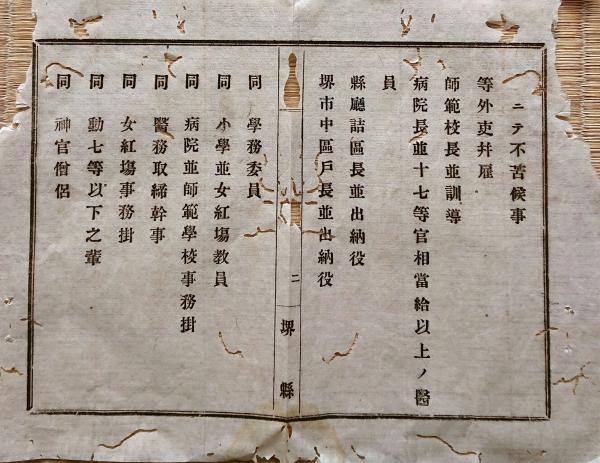 ニテ不苦候事
等外吏幷雇
師範校長並訓導
病院長並十七等官相當給以上ノ醫
員
縣廳詰區長並出納役
堺市中區戸長並出納役
二
堺縣
同 學務委員
同 小學並女紅場教員
同 病院並師範學校事務掛
同 醫務取締幹事
同 女紅場事務掛
同 勳七等以下之輩
同 神官僧侶